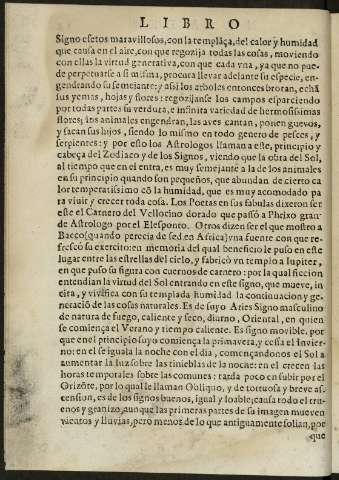 LIBRO
Signo efetos maravillosos, con la templãça, del calor y humidad
que causa en el aire, con que regozija todas las cosas, moviendo
con ellas la virtud generativa, con que cada vna, ya que no pue-
de perpetuarse a si misma, procura llevar adelante su especie, en-
gendrando su semejante: y assi los arboles entonces brotan, echã
sus yemas, hojas y flores: regozijanse los campos esparciendo
por todas partes su verdura, e infinita variedad de hermosissimas
flores; los animales engendran, las aves cantan, ponen guevos,
y sacan sus hijos, siendo lo mismo en todo genero de pesces, y
serpientes: y por esto los Astrologos llaman a este, principio y
cabeça del Zediaco y de los Signos, viendo que la obra del Sol,
al tiempo que en el entra, es muy semejante à la de los animales
en su principio quando son pequeños, que abundan de cierto ca
lor temperatissimo cõ la humidad, que es muy acomodado pa
ra viuir y crecer toda cosa. Los Poetas en sus fabulas dixeron ser
este el Carnero del Vellocino dorado que passò a Phrixo gran-
de Astrologo por el Elesponto. Otros dizen ser el que mostro a
Bacco (quando perecia de sed en Africa) vna fuente con que re-
frescò su exercito: en memoria del qual beneficio le puso en este
lugar entre las estrellas del cielo, y fabricò vn templo a Iupiter,
en que puso su figura con cuernos de carnero: por la qual ficcion
entendian la virtud del Sol entrando en este signo, que mueve, in
cita, y vivifica con su templada humidad la continuacion y ge-
neració de las cosas naturales. Es de suyo Aries Signo masculino
de natura de fuego, caliente y seco, diurno, Oriental, en quien
se comiença el Verano y tiempo caliente. Es signo movible, por
que en el principio suyo comiença la primavera, y cessa el Invier-
no: en el se iguala la noche con el dia, començandonos el Sol a
aumentar la luz sobre las tinieblas de la noche: en el crecen las
horas temporales sobre las comunes: tarda poco en subir por el
Orizõte, por lo qual le llaman Obliquo, y de tortuosa y breve as
cension, es de los signos buenos, igual y loable; causa todo el tru-
enos y granizo, aunque las primeras partes de su imagen mueven
vientos y lluvias, pero menos de lo que antiguamente solian, por
que